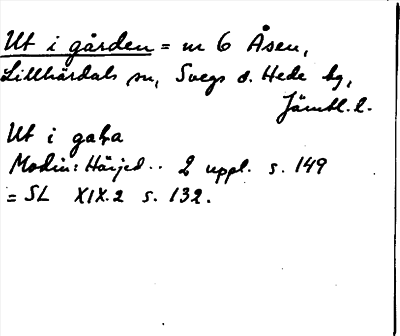 Ut i gården = nr 6 Åsen,
Lillhärdals sn, Svegs o. Hede hg,
Jämtl. l.
Ut i gaḷa
Modin: Härjed.. 2 uppl. s. 149
= SL XIX.2 s. 132.